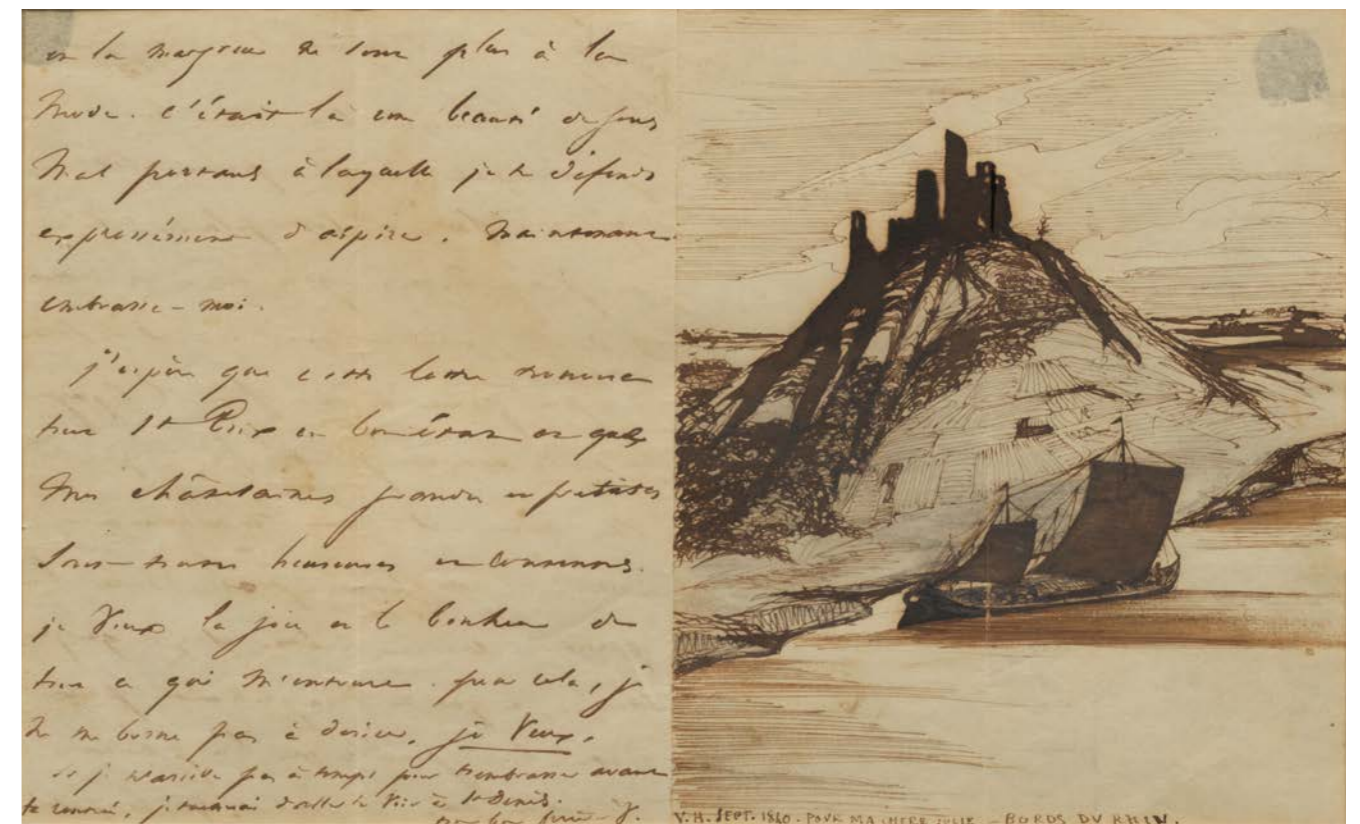 et la maigreur ne sont plus à la
mode. c'était là une beauté de gens
mal portans à laquelle je te défends
expressément d'aspirer. Maintenant
embrasse-moi.
j'espère que cette lettre trouvera
tout St Prix en bon état et que
mes châtelaines grandes et petites
sont toutes heureuses et contentes.
je veux la joie et le bonheur de
tout ce qui m'entoure. pour cela, je
ne me borne pas à désirer, je veux.
si je n'arrive pas à temps pour t'embrasser avant
ta rentrée, j'irai te voir à St Denis.
ton bon frère - V.
V.H. SEPT. 1840 - POUR MA CHERE JULIE - BORDS DU RHIN.